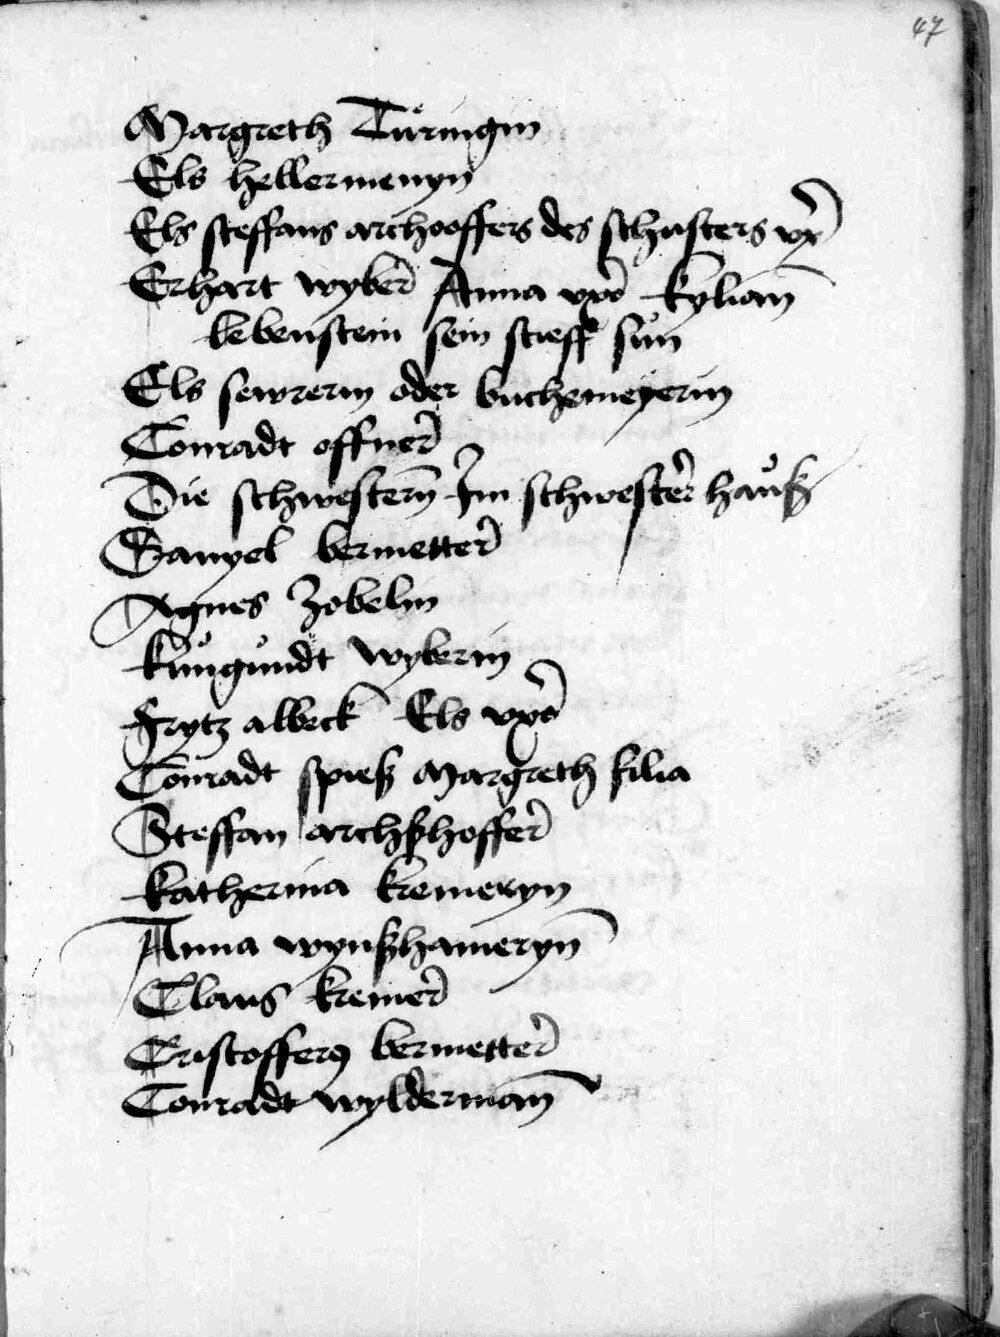 47
Margreth Türingin
Els hellermenyn
Els steffans archooffers des schusters vx
Erhart wyber Anna vxo kylian
lebenstein sein stieff sun
Els sewrerin oder buchemeyerin
Conradt offner
Die schwestern Im schwester hauß
Danyel bermetter
Agnes Zobelin
kungundt wyberin
Frytz albeck Els vxo
Conradt spieß Margreth filia
Steffan archßhoffer
katherina kremeryn
Anna wynßhameryn
Claus kremer
Cristofferꝰ bermetter
Conradt wylderman